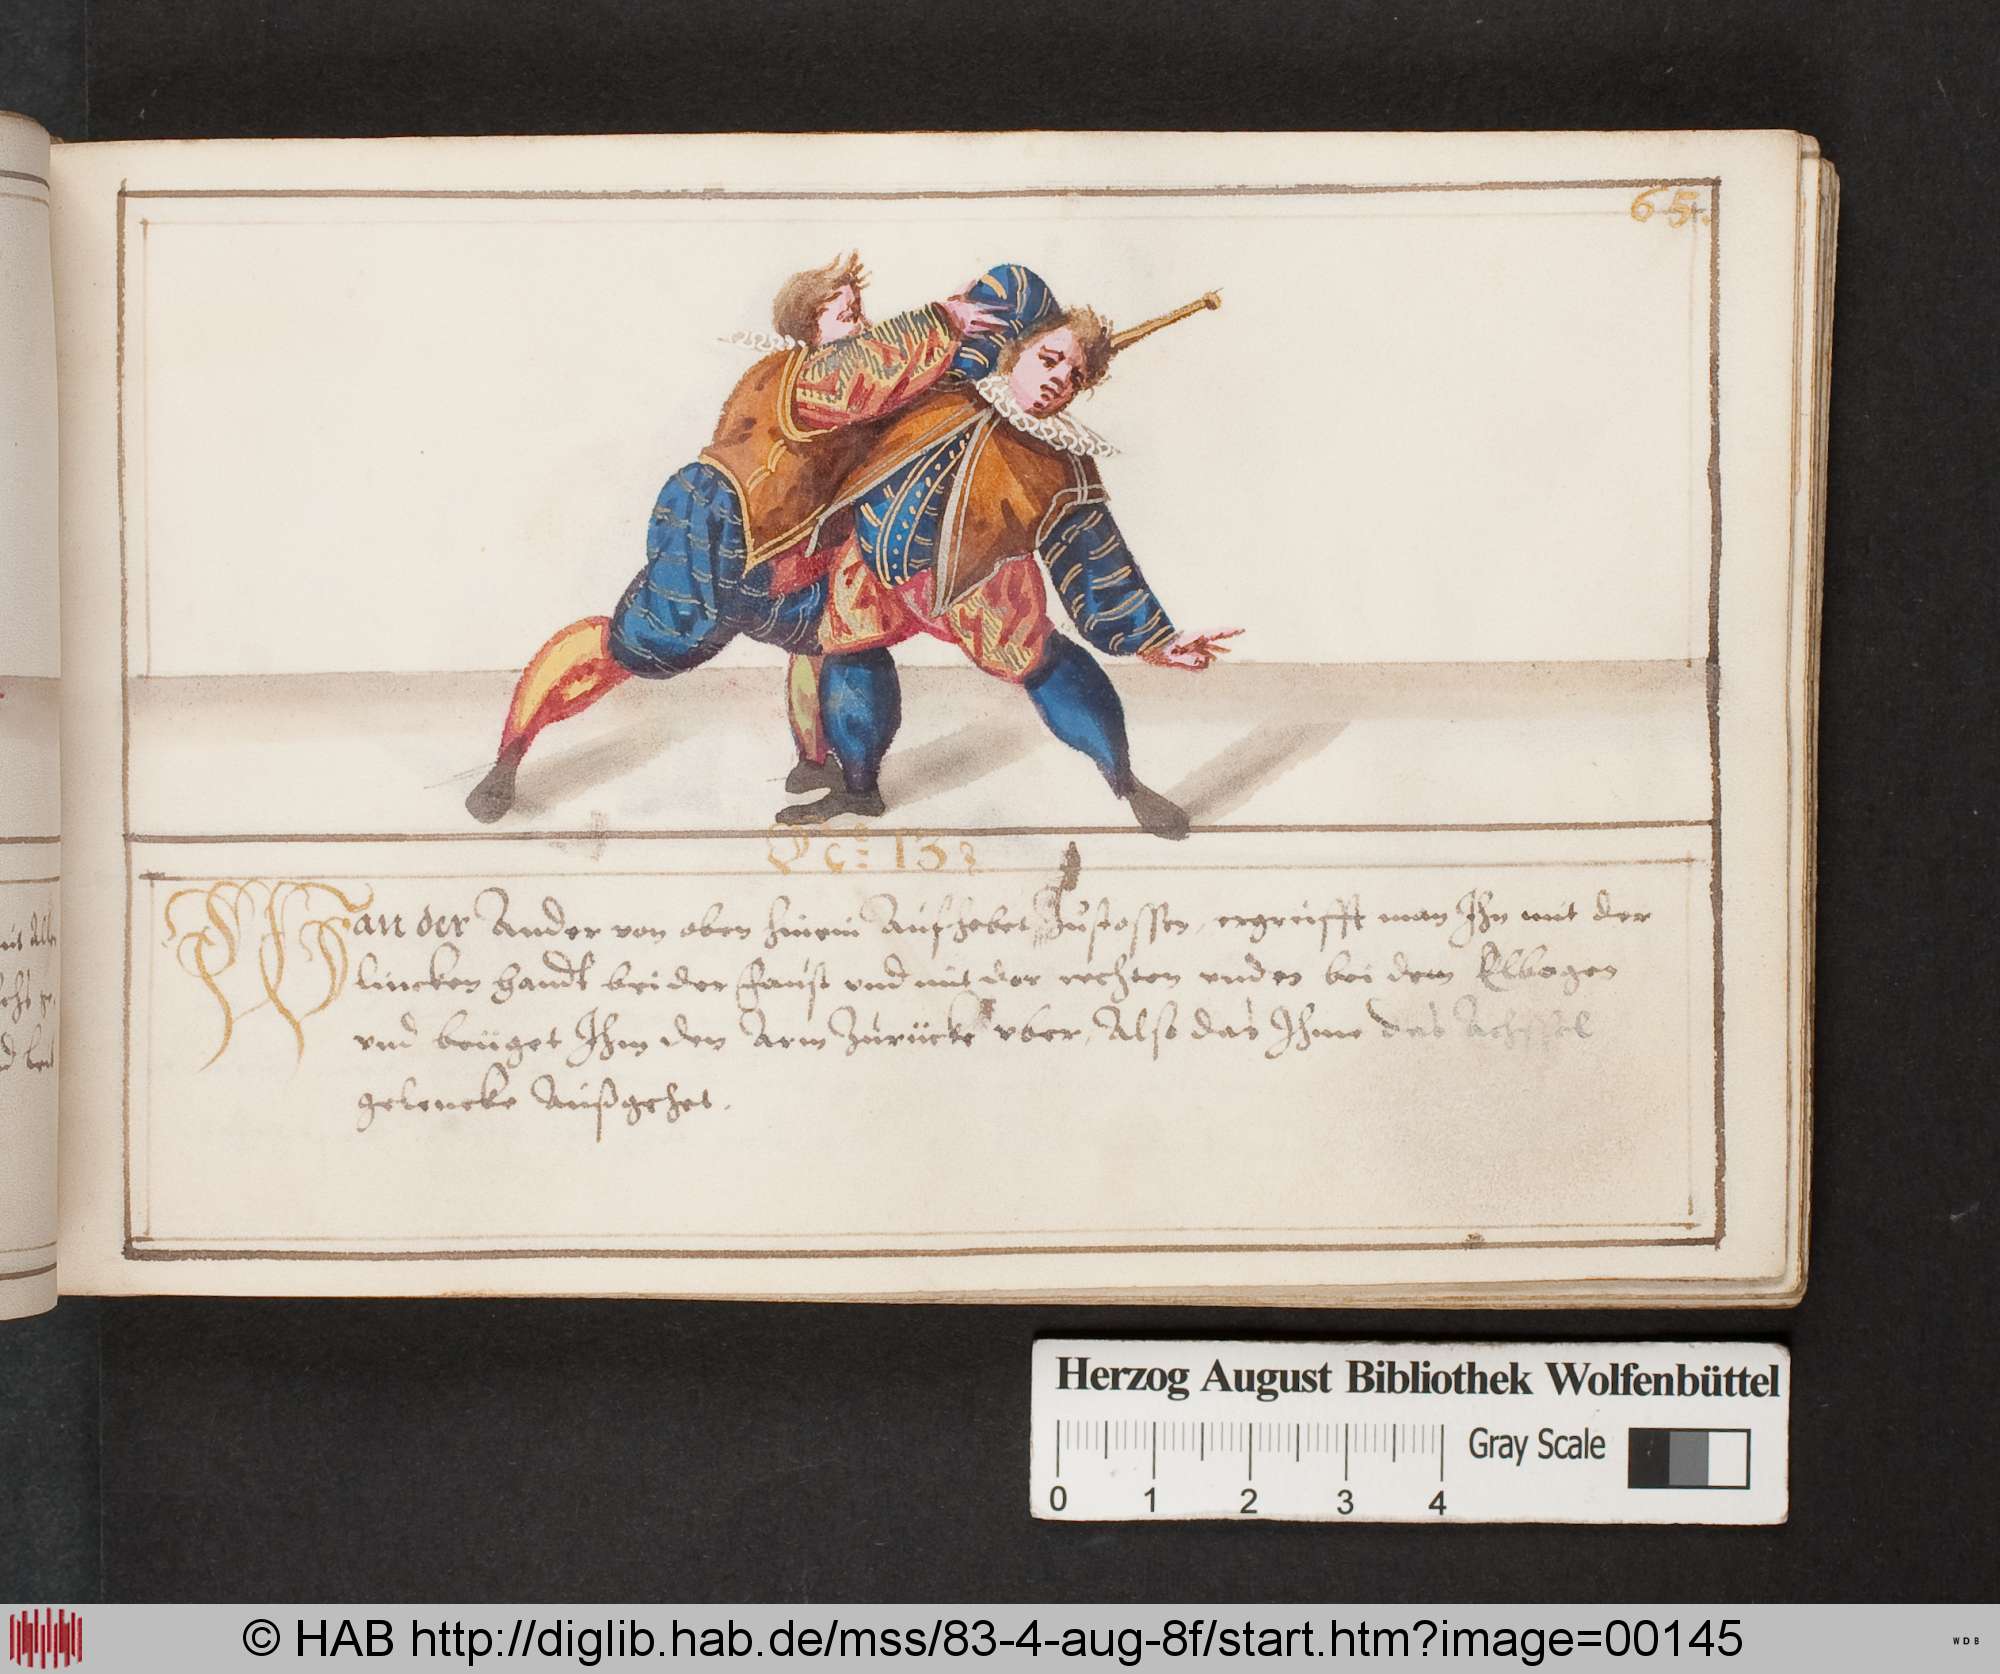 65.
13
Wan der Ander von oben hinein Aufhebet Zustossen, ergreifft man Ihn mit der
lincken handt bei der faust und mit der rechten unden bei dem Elbogen
und beüget Ihm den Arm Zurücke uber, Also das Ihme das Achssel
gelencke Außgehet.
Herzog August Bibliothek Wolfenbüttel
Gray Scale
0 1 2 3 4
© HAB http://diglib.hab.de/mss/83-4-aug-8f/start.htm?image=00145
WDB